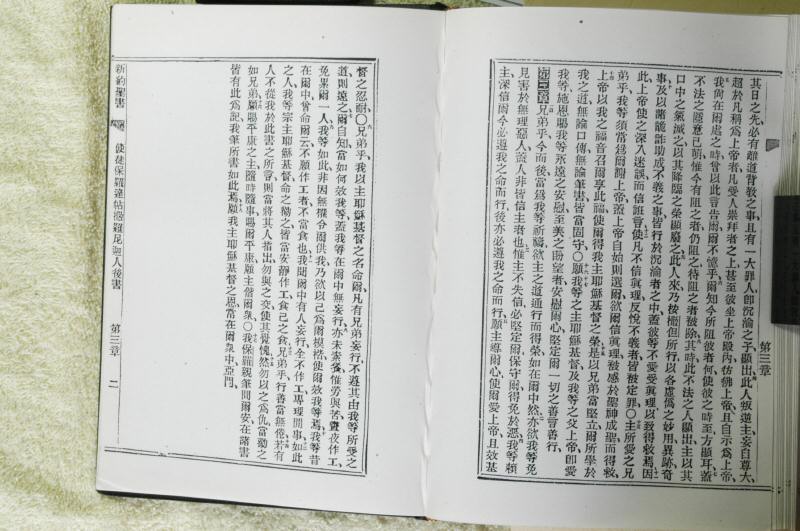 第三章
其日之先必有離道背敎之事且有一大罪人卽沉淪之子顯出此人叛逆主妄自尊大
超於凡稱爲上帝者凡受人崇拜者之上甚至彼坐上帝殿內彷彿上帝且自示爲上帝
我尙在爾處之時曾以此言告爾爾不憶乎爾知今所阻彼者何使彼之時至方顯耳蓋
不法之隱意已萌惟今有阻之者仍阻之待阻之者被除其時此不法之人顯出主以其
口中之氣滅之以其降臨之榮顯廢之此人來乃按
所行以各虛僞之妙用異跡奇
事及以諸詭詐助成不義之事皆行於沉淪者之中蓋彼等不愛受眞理以致得救焉因
此上帝使之深入迷誤而信誑言使凡不信眞理反悅不義者皆被定罪〇主所愛之兄
弟乎我等須當爲爾謝上帝蓋上帝自始則選爾欲爾信眞理被感於聖神成聖而得救
上帝以我之福音召爾享此福使爾得我主耶穌基督之榮是以兄弟當堅立爾所學於
我之道無論口傳無論筆書皆當固守〇願我等之主耶穌基督及我等之父上帝卽愛
我等施恩賜我等永遠之安慰至美之盼望者安慰爾心堅定爾一切之善言善行
第三章 兄弟乎今而後當爲我等祈禱欲主之道通行而得榮如在爾中然亦欲我等免
見害於無理惡人蓋人非皆信主者也惟主不失信必堅定爾保守爾得免於惡我等賴
主深信爾今必遵我之命而行後亦必遵我之命而行願主導爾心使爾愛上帝且效基
督之忍耐〇兄弟乎我以主耶穌基督之名命爾凡有兄弟妄行不遵其由我等所受之
道則遠之爾自知當如何效我等蓋我等在爾中無妄行亦未素餐惟勞與苦晝夜作工
免累爾一人我等如此非因無權令爾供我乃欲以己爲爾模楷使爾效我等焉我等昔
在爾中曾命爾云不願作工者不當食也我聞爾中有人妄行全不作工專理閒事如此
之人我等宗主耶穌基督命之勸之皆當安靜作工食己之食兄弟乎行善當無倦若有
人不從我於此書之所言則當將其人指出勿與之交使其覺愧然勿以之爲仇當勸之
如兄弟願賜平康之主隨時隨事賜爾平康願主偕爾衆〇我保羅親筆問爾安在諸書
皆有此爲記我筆所書如此焉願我主耶穌基督之恩常在爾衆中亞門
新約聖書 使徒保羅達帖撒羅尼迦人後書 第三章 二